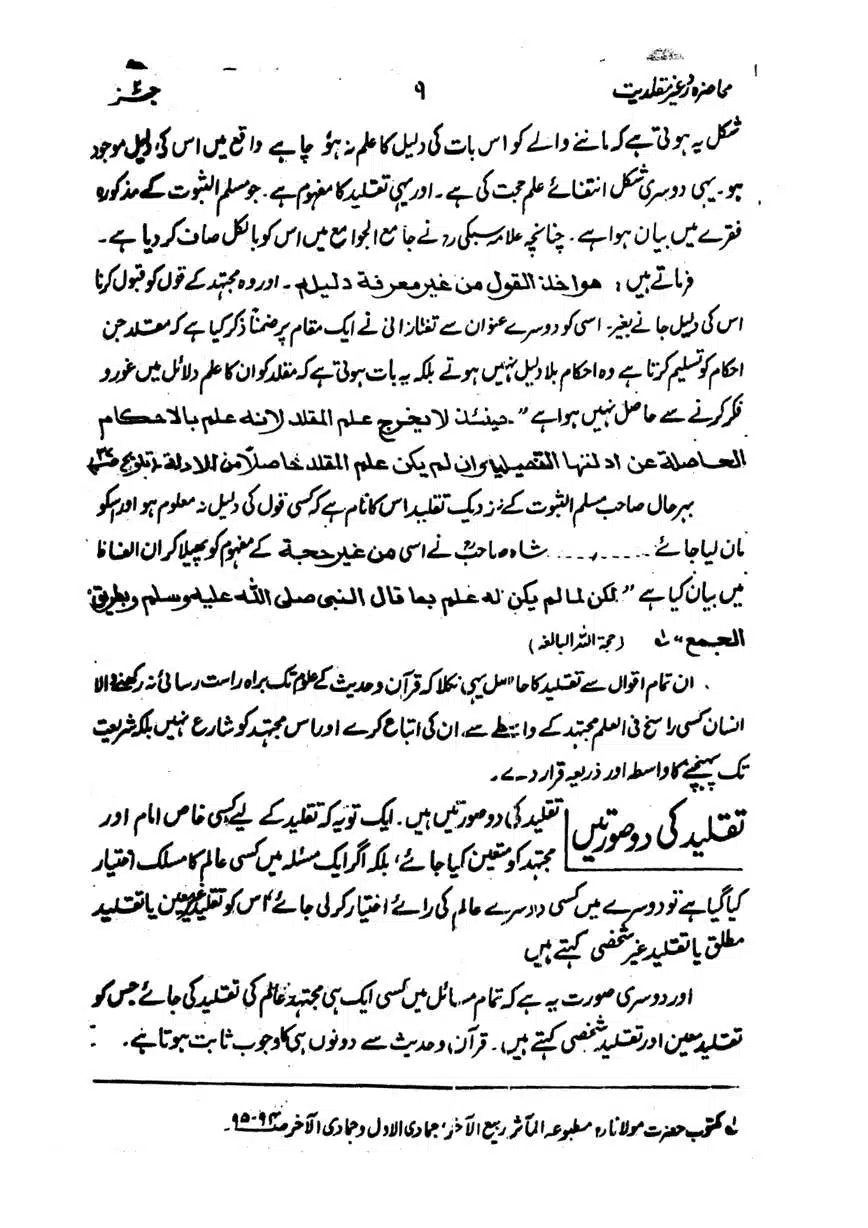 محاضرہ رد غیر مقلدیت ۹ جز ۲
شکل یہ ہوتی ہے کہ ماننے والے کو اس بات کی دلیل کا علم نہ ہو چاہے واقع میں اس کی دلیل موجود
ہو۔ یہی دوسری شکل انتفائے علم حجت کی ہے۔ اور یہی تقلید کا مفہوم ہے۔ جو مسلم الثبوت کے مذکورہ
فقرے میں بیان ہوا ہے۔ چنانچہ علامہ سبکی رہ نے جامع الجوامع میں اس کو بالکل صاف کر دیا ہے۔
فرماتے ہیں: هو اخذ القول من غير معرفة دليله۔ اور وہ مجتہد کے قول کو قبول کرنا
اس کی دلیل جانے بغیر۔ اسی کو دوسرے عنوان سے تفتازانی نے ایک مقام پر ضمناً ذکر کیا ہے کہ مقلد جن
احکام کو تسلیم کرتا ہے وہ احکام بلا دلیل نہیں ہوتے بلکہ یہ بات ہوتی ہے کہ مقلد کو ان کا علم دلائل میں غور و
فکر کرنے سے حاصل نہیں ہوا ہے"۔ حينئذ لا يخرج علم المقلد لانه علم بالاحكام
الحاصلة عن ادلتها التفصيلية وان لم يكن علم المقلد حاصلاً من الادلة۔ (تلویح ص۳۲)
بہرحال صاحب مسلم الثبوت کے نزدیک تقلید اس کا نام ہے کہ کسی قول کی دلیل نہ معلوم ہو اور اسکو
مان لیا جائے ۔۔۔۔۔۔۔۔۔ شاہ صاحبؒ نے اسی من غير حجة کے مفہوم کو پھیلا کر ان الفاظ
میں بیان کیا ہے "لكن لما لم يكن له علم بما قال النبى صلى الله عليه وسلم وبطريق
الجمع" لہ (حجۃ اللہ البالغہ)
ان تمام اقوال سے تقلید کا حاصل یہی نکلا کہ قرآن و حدیث کے علوم تک براہ راست رسائی نہ رکھنے والا
انسان کسی راسخ فی العلم مجتہد کے واسطے سے، ان کی اتباع کرے اور اس مجتہد کو شارع نہیں بلکہ شریعت
تک پہنچنے کا واسطہ اور ذریعہ قرار دے۔
تقلید کی دو صورتیں تقلید کی دو صورتیں ہیں۔ ایک تو یہ کہ تقلید کے لیے کسی خاص امام اور
مجتہد کو متعین نہ کیا جائے، بلکہ اگر ایک مسئلہ میں کسی عالم کا مسلک اختیار
کیا گیا ہے تو دوسرے میں کسی دوسرے عالم کی رائے اختیار کر لی جائے، اس کو تقلید غیر معین یا تقلید
مطلق یا تقلید غیر شخصی کہتے ہیں
اور دوسری صورت یہ ہے کہ تمام مسائل میں کسی ایک ہی مجتہد عالم کی تقلید کی جائے جس کو
تقلید معین اور تقلید شخصی کہتے ہیں۔ قرآن و حدیث سے دونوں ہی کا وجوب ثابت ہوتا ہے۔
لہ مکتوب حضرت مولانا رہ مطبوعہ المآثر ربیع الآخر، جمادی الاول و جمادی الآخر ص۹۴-۹۵۔